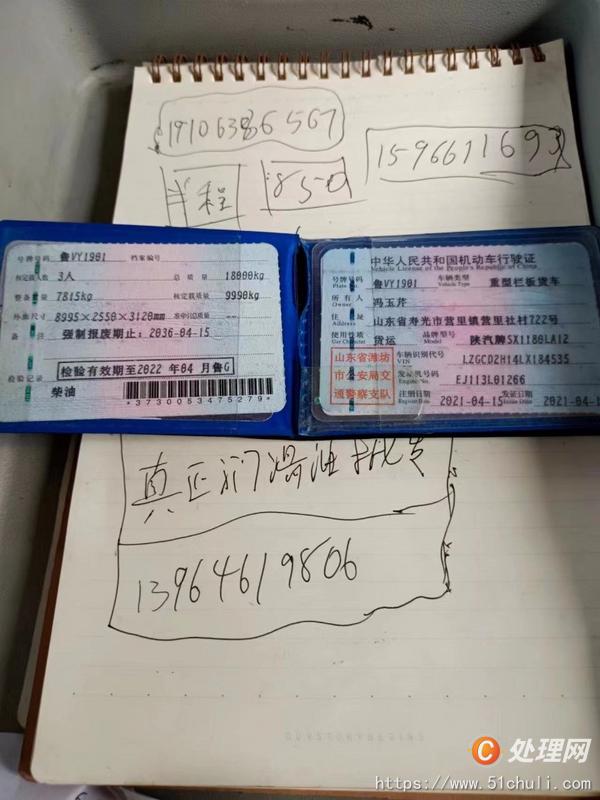 19106386567
15966116993
半程
号牌号码 鲁VY1901 档案编号
核定载人数 3人 总质量 18000kg
整备质量 7815kg 核定载质量 9990kg
外廓尺寸 8995×2550×3120mm 准牵引总质量
备注 强制报废期止：2036-04-15
检验有效期至2022 年04 月鲁G
检验记录
柴油
*3730053475279*
中华人民共和国机动车行驶证
Vehicle License of the People's Republic of China
号牌号码 鲁VY1901 车辆类型 重型栏板货车
Plate No. Vehicle Type
所有人 冯玉芹
Owner
住址 山东省寿光市营里镇营里社村722号
Address
使用性质 货运 品牌型号 陕汽牌SX1180LA12
Use Character Model
山东省潍坊市公安局交通警察支队
车辆识别代号 LZGCD2H14LX184535
VIN
发动机号码 EJ113L01266
Engine No.
注册日期 2021-04-15 发证日期 2021-04-1
Register Date Issue Date
真正
13964619806
C 处理网
https://www.51chuli.com/